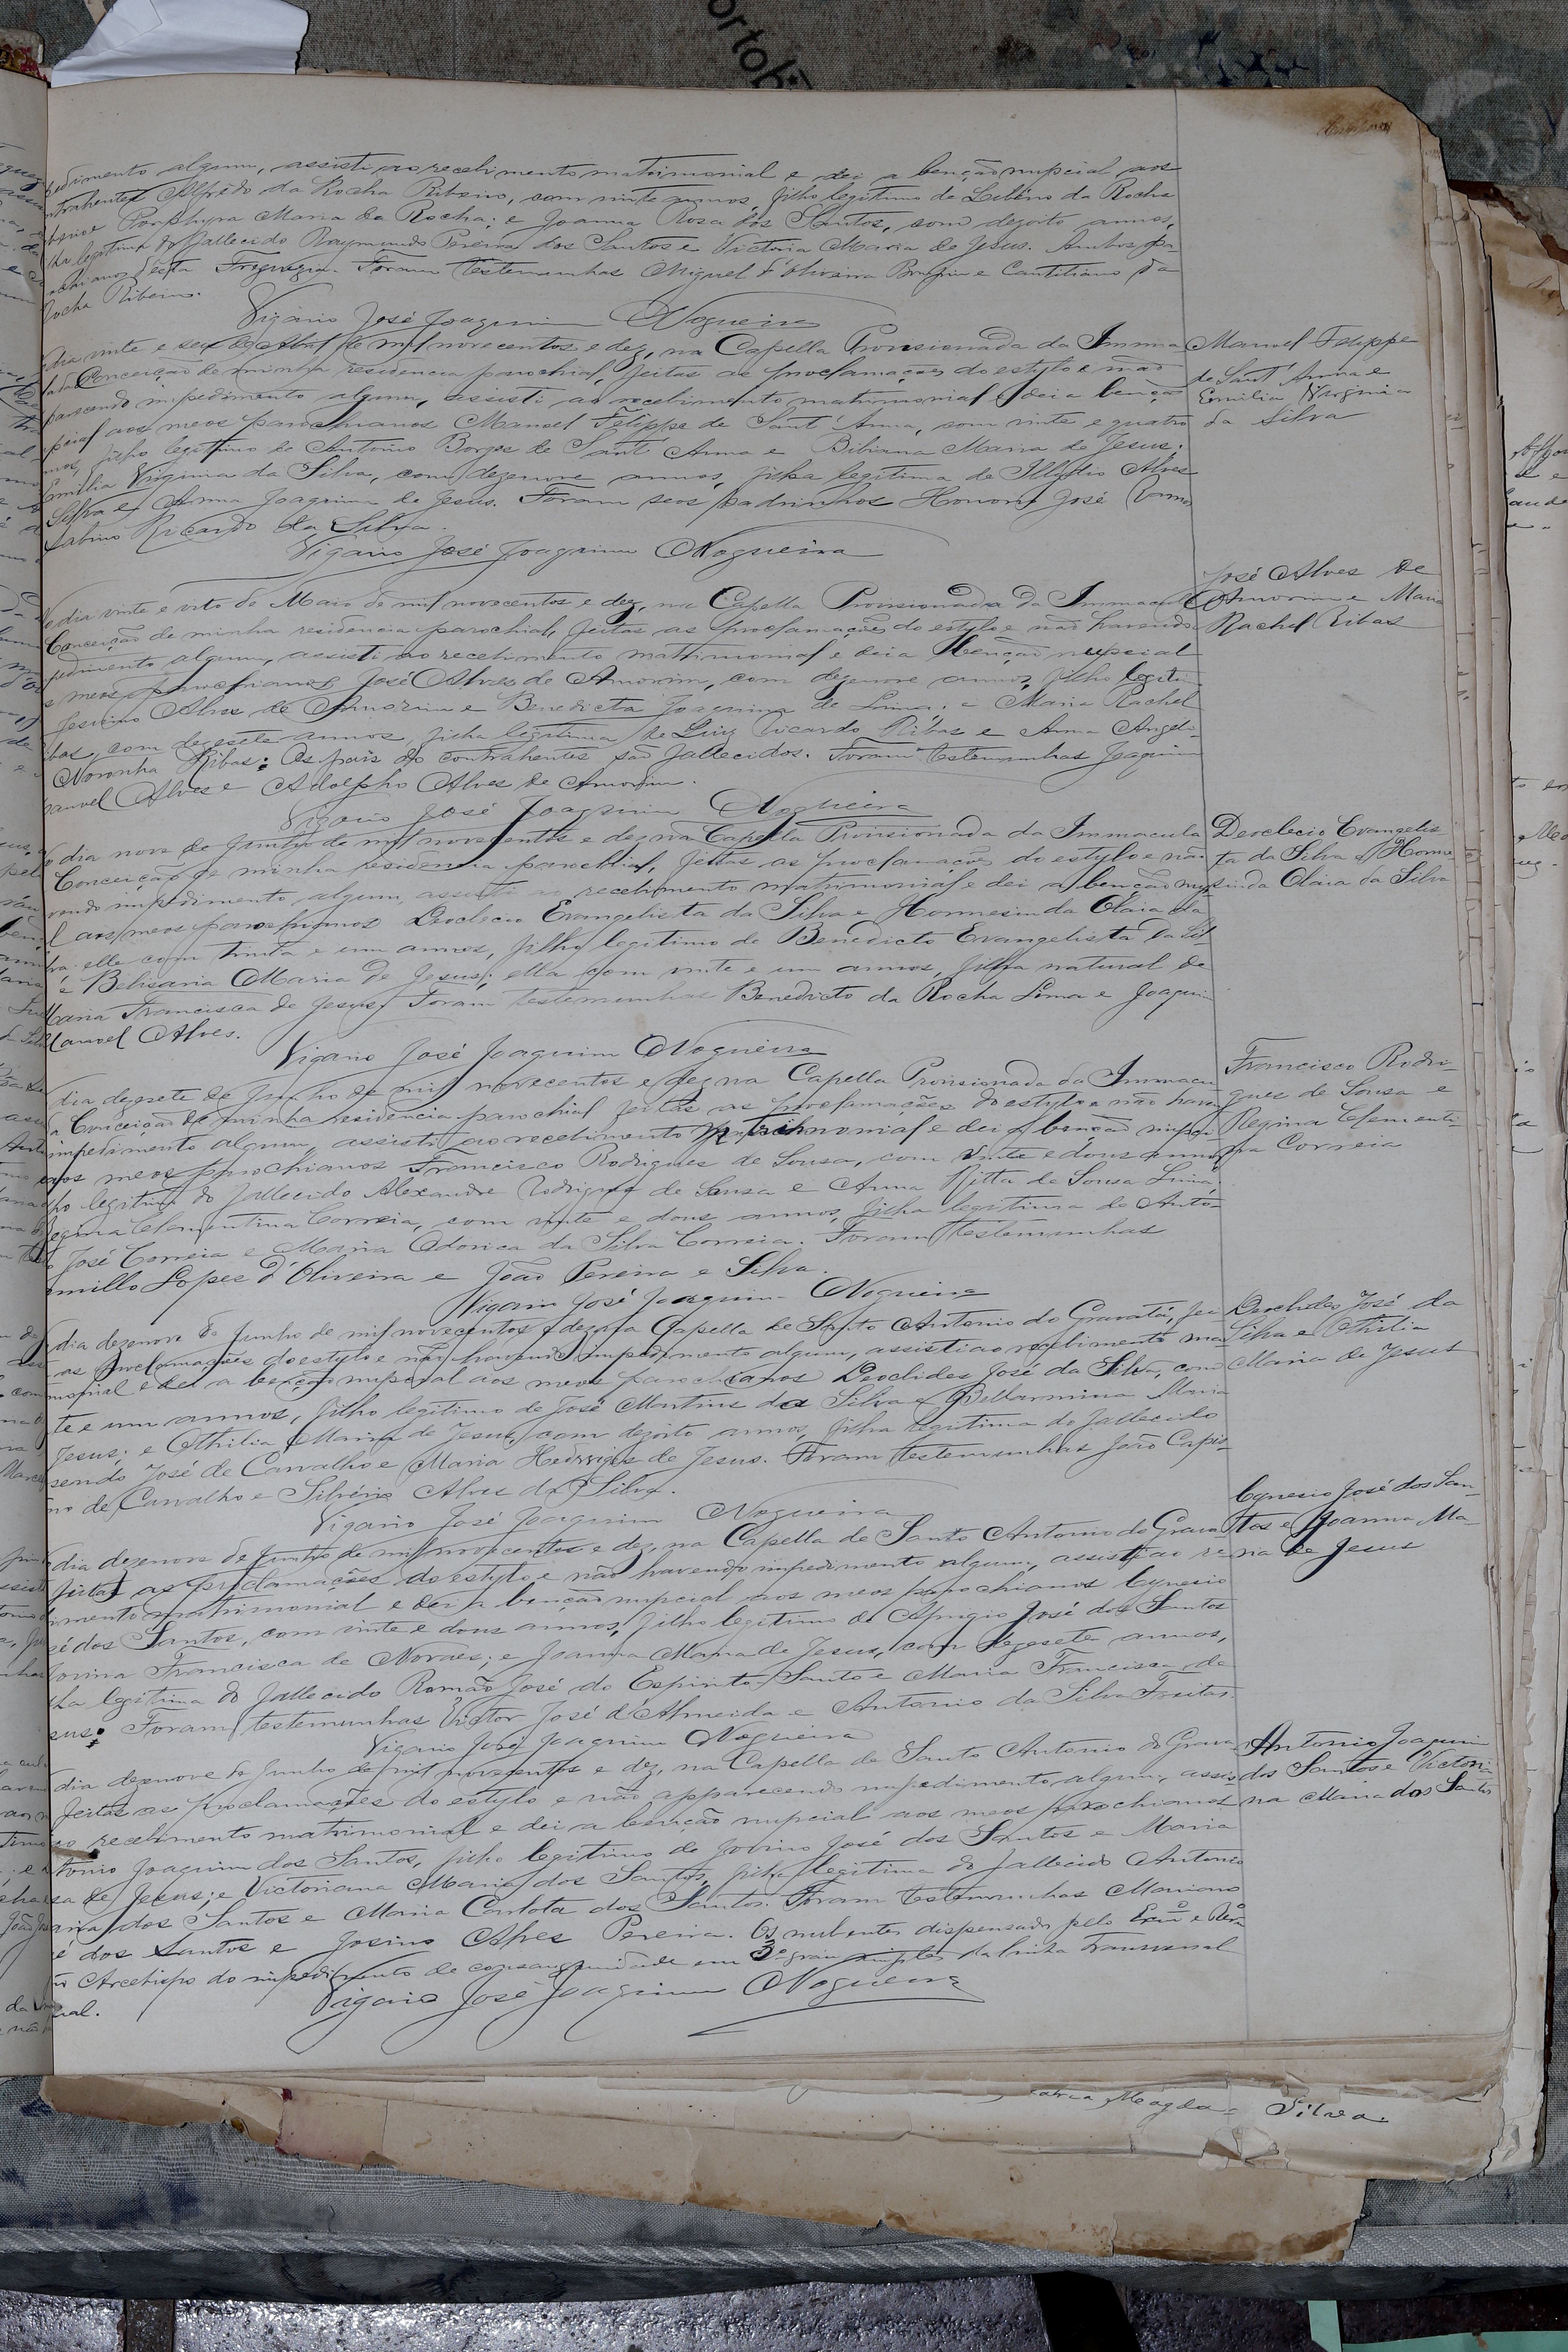 pedimento algum, assisti ao recebimento matrimonial e dei a benção nupcial aos
Alfredo da Rocha Ribeiro, com vinte annos, filho legitimo de da Rocha
Porphyra Maria da Rocha; e Joanna Rosa dos Santos, com dezoito annos,
legitima do fallecido Raymundo Pereira dos Santos e Victoria Maria de Jesus. Ambos pa-
desta Freguezia. Foram testemunhas Miguel d'Oliveira e Cantiliano da
Rocha Ribeiro.
Vigario José Joaquim Nogueira
dia vinte e seis de Abril de mil novecentos e dez, na Capella Provisionada da Imma
Conceição de minha residencia parochial, feitas as proclamações do estylo e não
parecendo impedimento algum, assisti ao recebimento matrimonial e dei a benção
pcial aos meos parochianos Manoel Felippe de Sant' Anna, com vinte e quatro
nos, filho legitimo de Antonio Borges de Sant' Anna e Bibiana Maria de Jesus;
Emilia Virginia da Silva, com dezenove annos, filha legitima de Illydio Alves
Silva e Anna Joaquina de Jesus. Foram seos padrinhos José
Sabino Ricardo da Silva.
Vigario José Joaquim Nogueira
Manoel Felippe
de Sant' Anna e
Emilia Virginia
da Silva
dia vinte e oito de Maio de mil novecentos e dez, na Capella Provisionada da Immacula
Conceição de minha residencia parochial, feitas as proclamações do estylo e não havendo
pedimento algum, assisti ao recebimento matrimonial e dei a benção nupcial
s meos parochianos José Alves de Amorim, com dezenove annos, filho legiti-
Jesuino Alves de Amorim e Benedicta Joaquina de Lima; e Maria Rachel
ibas, com dezesete annos, filha legitima de Luiz Ricardo Ribas e Anna Angeli-
Noronha Ribas; Os pais dos contrahentes são fallecidos. Foram testemunhas Joaquim
anoel Alves e Adolpho Alves de Amorim.
Vigario José Joaquim Nogueira
José Alves de
Amorim e Maria
Rachel Ribas
dia nove de Junho de mil novecentos e dez na Capella Provisionada da Immacula
Conceição de minha residencia parochial, feitas as proclamações do estylo e não
vendo impedimento algum, assisti ao recebimento matrimonial e dei a benção nup
l aos meos parochianos Deoclecio Evangelista da Silva e Hormesinda Olaia da
elle com trinta e um annos, filho legitimo de Benedicto Evangelista da Sil-
e Belisaria Maria de Jesus; ella com vinte e um annos, filha natural de
Maria Francisca de Jesus. Foram testemunhas Benedicto da Rocha Lima e Joaquim
Manoel Alves.
Vigario José Joaquim Nogueira
Deoclecio Evangelis
ta da Silva e Horme-
sinda Olaia da Silva
dia dezesete de Junho de mil novecentos e dez na Capella Provisionada da Immacu
a Conceição de minha residencia parochial feitas as proclamações do estylo e não haven
impedimento algum, assisti ao recebimento matrimonial e dei a benção nupci
aos meos parochianos Francisco Rodrigues de Sousa, com vinte e dous annos
ho legitimo do fallecido Alexandre Rodrigues de Sousa e Anna Ritta de Sousa Lima;
Regina Clementina Correia, com vinte e dous annos, filha legitima de Anto-
José Correia e Maria Odorica da Silva Correia. Foram testemunhas
amillo Lopes d'Oliveira e João Pereira e Silva.
Vigario José Joaquim Nogueira
Francisco Rodri-
gues de Sousa e
Regina Clementi
na Correia
dia dezenove de Junho de mil novecentos e dez na Capella de Santo Antonio do Gravatá, fei-
as proclamações do estylo e não havendo impedimento algum, assisti ao recebimento ma
monial e dei a benção nupcial aos meos parochianos Deoclides José da Silva, com
te e um annos, filho legitimo de José Martins da Silva e Bellarmina Maria
Jesus; e Othilia Maria de Jesus, com dezoito annos, filha legitima do fallecido
sendo José de Carvalho e Maria Hedwiges de Jesus. Foram testemunhas João Capis-
no de Carvalho e Silverio Alves da Silva.
Vigario José Joaquim Nogueira
Deoclides José da
Silva e Othilia
Maria de Jesus
dia dezenove de Junho de mil novecentos e dez, na Capella de Santo Antonio do Grava
feitas as proclamações do estylo e não havendo impedimento algum, assisti ao re
imento matrimonial e dei a benção nupcial aos meos parochianos Cynesio
sé dos Santos, com vinte e dous annos, filho legitimo de Aprigio José dos Santos
Jovina Francisca de Novaes; e Joanna Maria de Jesus, com dezesete annos,
lha legitima do fallecido Romão José do Espirito-Santo e Maria Francisca de
sus; Foram testemunhas Victor José d'Almeida e Antonio da Silva Freitas.
Vigario José Joaquim Nogueira
Cynesio José dos San-
tos e Joanna Ma-
ria de Jesus
dia dezenove de Junho de mil novecentos e dez, na Capella de Santo Antonio do Grava
feitas as proclamações do estylo e não apparecendo impedimento algum, assis
ao recebimento matrimonial e dei a benção nupcial aos meos parochianos
tonio Joaquim dos Santos, filho legitimo de Jovino José dos Santos e Maria
sa de Jesus; e Victoriana Maria dos Santos, filha legitima do fallecido Antonio
aria dos Santos e Maria Carlota dos Santos. Foram testemunhas Mariano
é dos Santos e Josino Alves Pereira. Os nubentes dispensados pelo Exmº e Revmº
Arcebispo do impedimento de consanguinidade em 3º grau simples da linha transversal
ual.
Vigario José Joaquim Nogueira
Antonio Joaquim
dos Santos e Victoria
na Maria dos Santos
Magda Silva